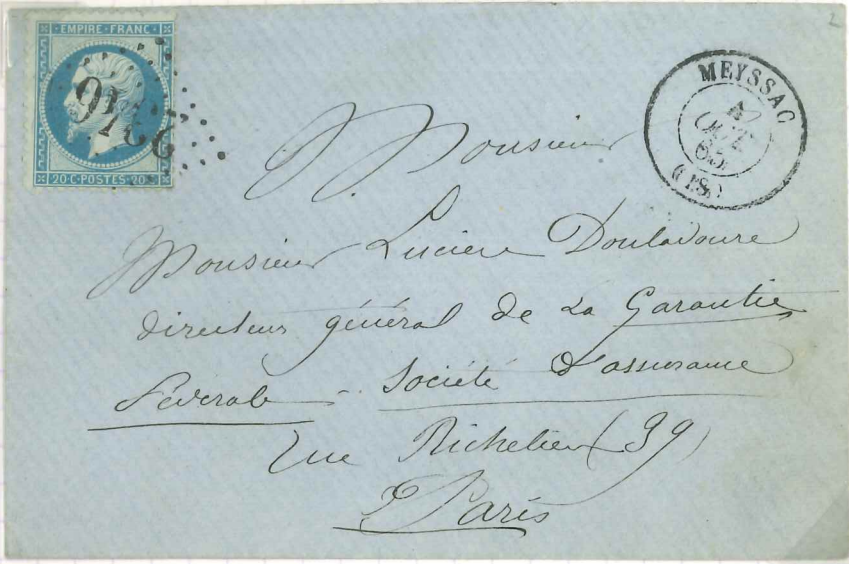 EMPIRE FRANC
20 C·POSTES·20
MEYSSAC
OCT
65
(18)
Monsieur
Monsieur Lucien Douladoure
directeur général de La Garantie
Fédérale - Société d'assurance
rue Richelieu (39)
Paris